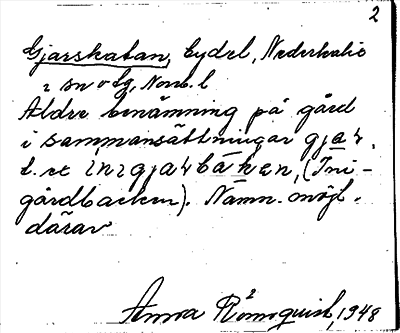 2
Gjarskatan, Eydel, Nederkalix
i sn o tg, Norrb. l
Äldre benämning på gård
i sammansättningar gjar,
t. ex inigjarbäken, (Ini-
gårdbacken). Namn. möjl.
därav
Anna Rönnquist, 1948